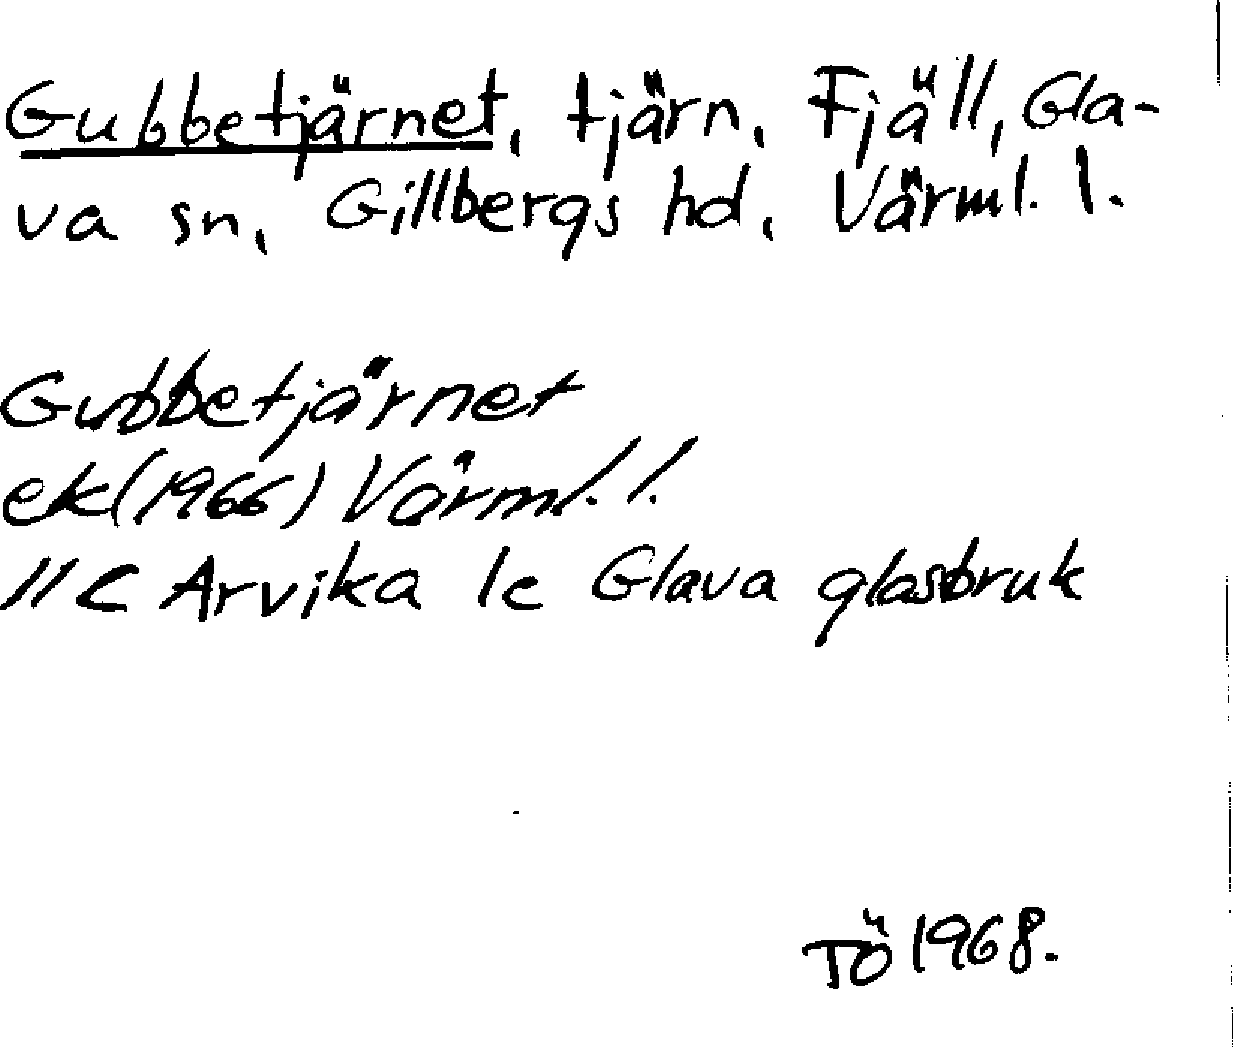 Gubbetjärnet, tjärn, Fjäll, Gla-
va sn, Gillbergs hd, Värml. l.
Gubbetjärnet
ek (1966) Värml. l.
11C Arvika 1c Glava glasbruk
TÖ 1968.